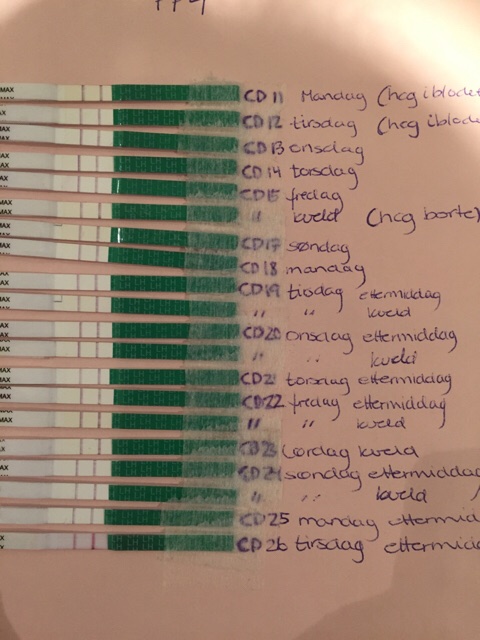 MAX CD 11 Mandag (hcg i blodet
MAX CD 12 tirsdag (hcg i blodet
MAX CD 13 onsdag
MAX CD 14 torsdag
MAX CD 15 fredag
MAX " kveld (hcg borte)
MAX CD 17 søndag
MAX CD 18 mandag
MAX CD 19 tirsdag ettermiddag
" " kveld
CD 20 onsdag ettermiddag
" " kveld
CD 21 torsdag ettermiddag
CD 22 fredag ettermiddag
" " kveld
CD 23 Lørdag kveld
CD 24 søndag ettermiddag
" " kveld
CD 25 mandag ettermid
CD 26 tirsdag ettermid